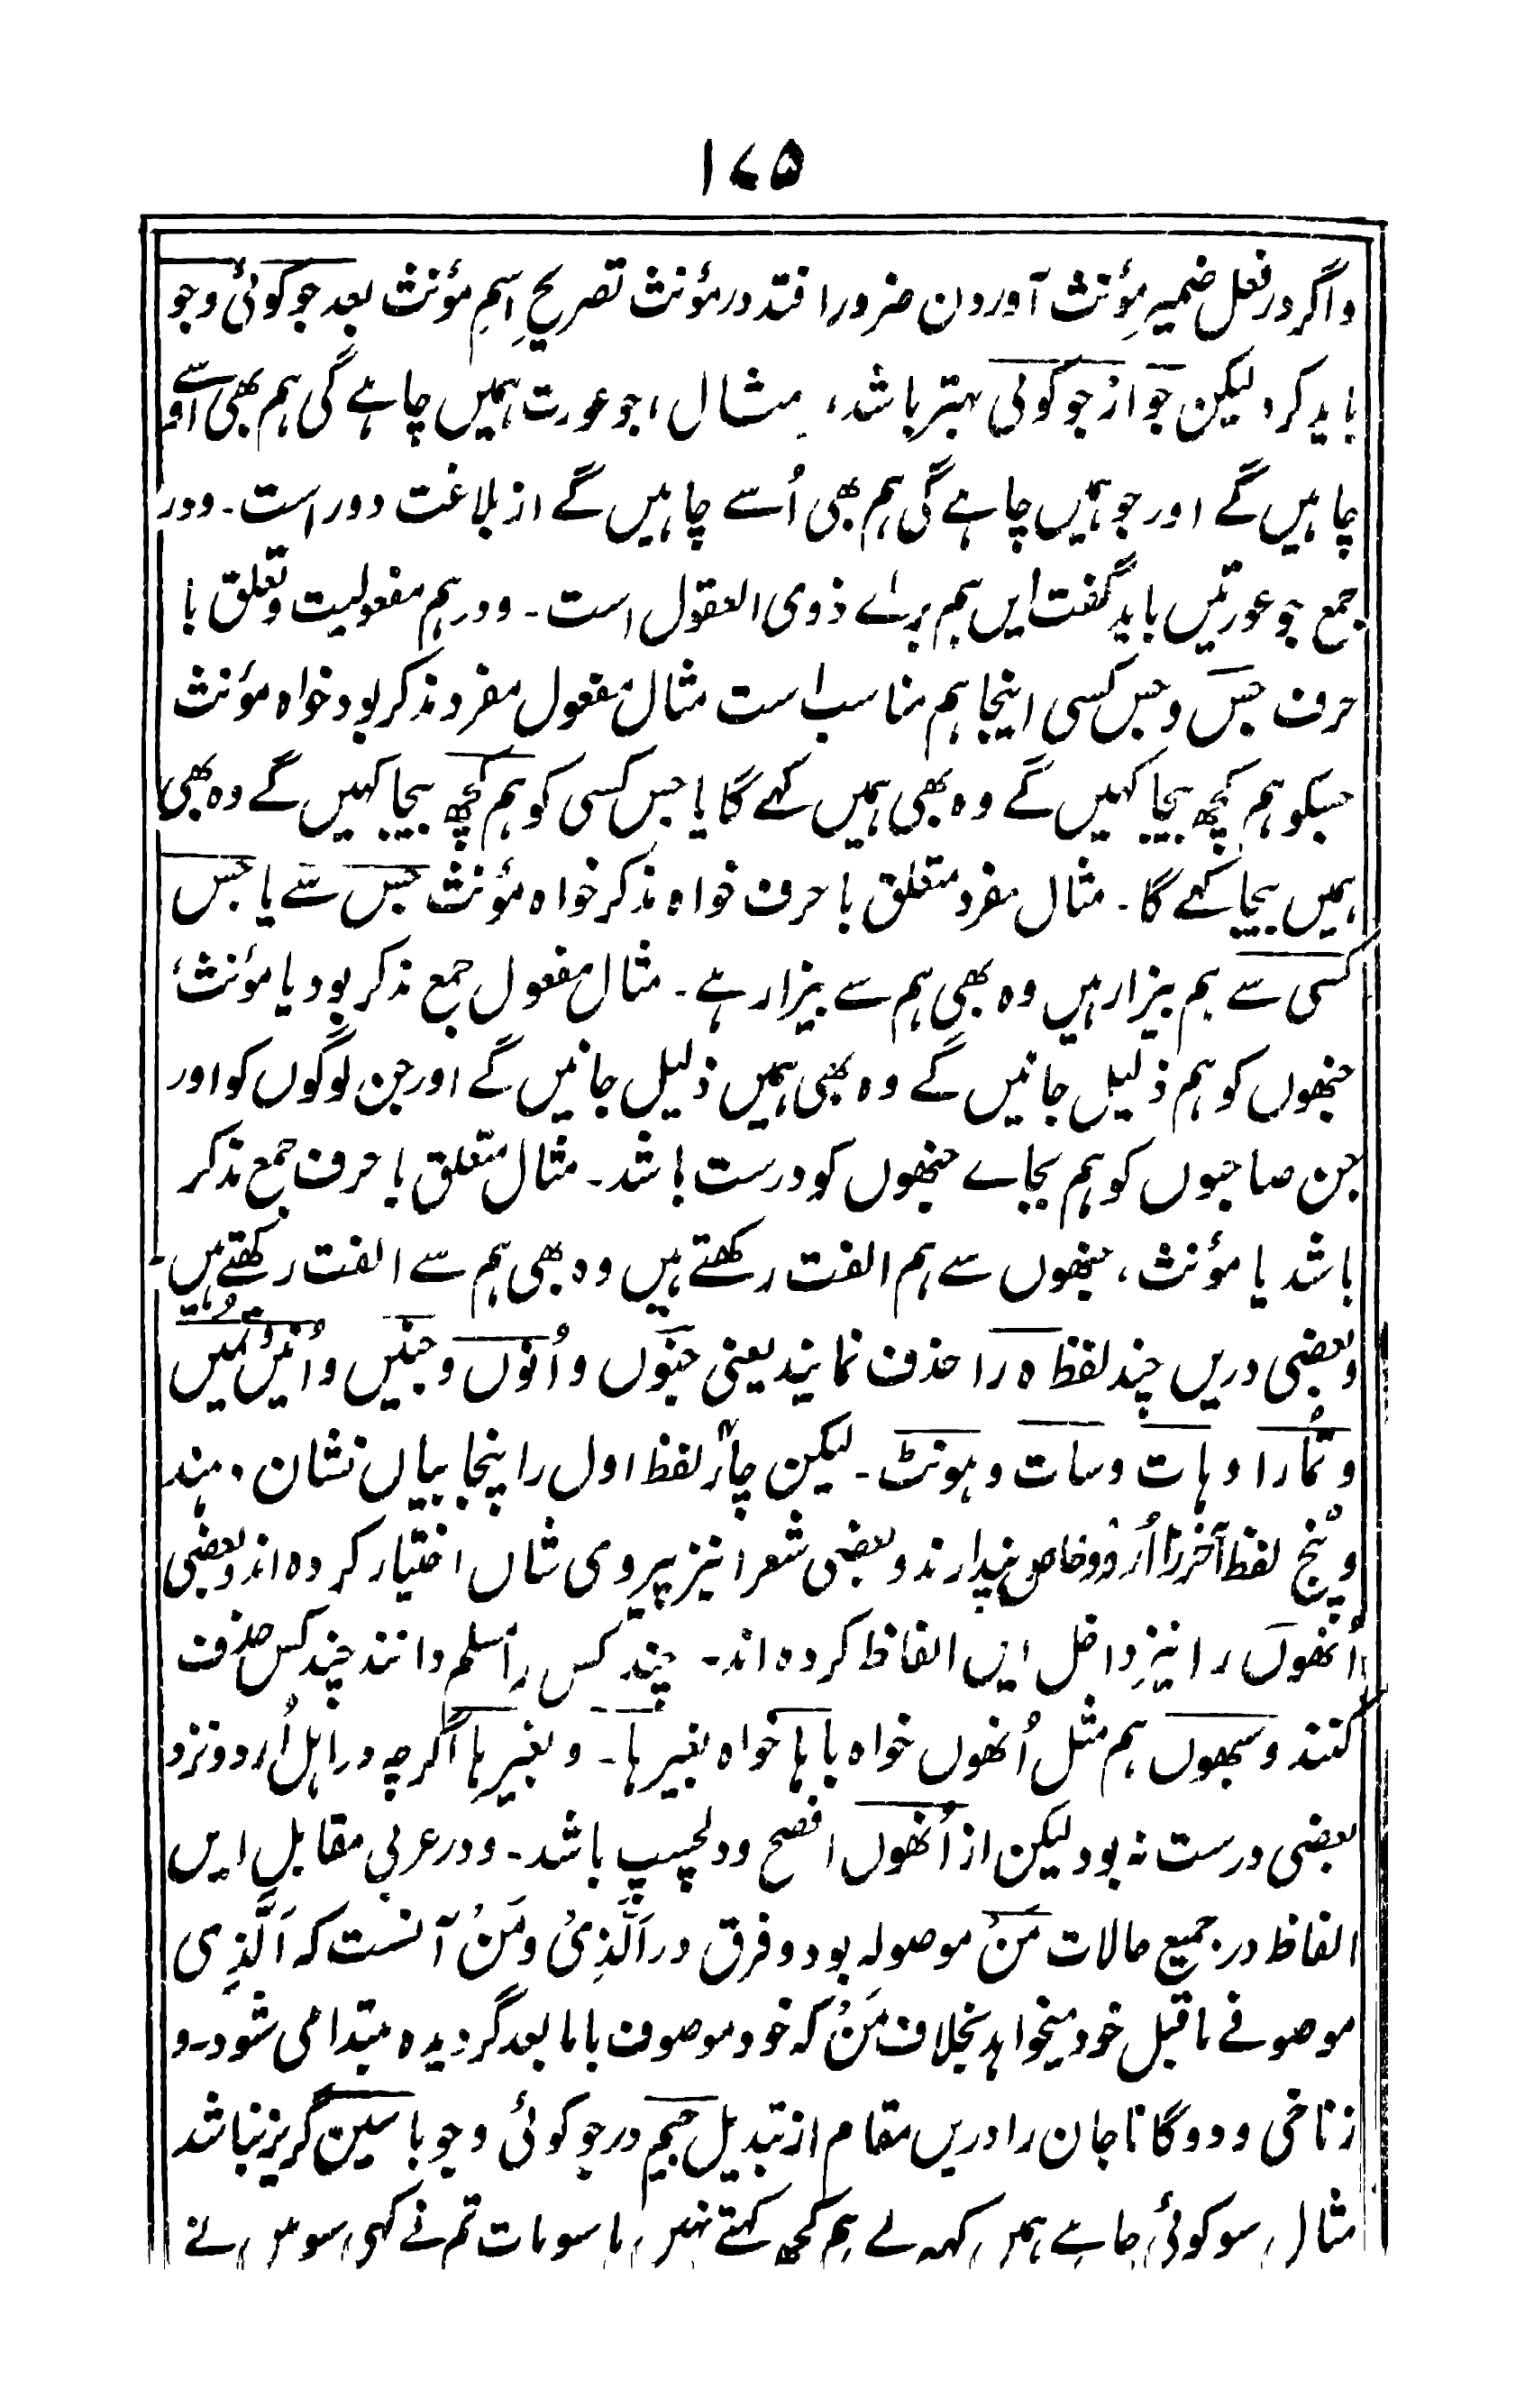 ۱۷۵
و اگر در فعل ضمیرِ مؤنث آوردن ضرور افتد در مؤنث تصریحِ اسمِ مؤنث بعد جو کوئی وجو
باید کرد لیکن جو از جو کوئی بہتر باشد، مثال، جو عورت ہمیں چاہے گی ہم بھی اُسے
چاہیں گے اور جو ہمیں چاہے گی ہم بھی اُسے چاہیں گے از بلاغت دور است۔ و در
جمع جو عورتیں باید گفت ایں ہم براے ذوی العقول است۔ و در ہم مفعولیت و تعلق با
حرف جس و جس کسی اینجا ہم مناسب است مثال مفعول مفرد مذکر بود خواہ مؤنث
جسکو ہم کچھ بیجا کہیں گے وہ بھی ہمیں کہے گا یا جس کسی کو ہم کچھ بیجا کہیں گے وہ بھی
ہمیں بیجا کہے گا۔ مثال مفرد متعلق با حرف خواہ مذکر خواہ مؤنث جس سے یا جس
کسی سے ہم بیزار ہیں وہ بھی ہم سے بیزار ہے۔ مثال مفعول جمع مذکر بود یا مؤنث،
جنھوں کو ہم ذلیل جانیں گے وہ بھی ہمیں ذلیل جانیں گے اور جن لوگوں کو اور
جن صاحبوں کو ہم بجاے جنھوں کو درست باشد۔ مثال متعلق با حرف جمع مذکر
باشد یا مؤنث، جنھوں سے ہم الفت رکھتے ہیں وہ بھی ہم سے الفت رکھتے ہیں۔
و بعضی دریں چند لفظ ہ را حذف نمایند یعنی جنوں و اُنوں و جنیں و اُنیں و تُمیں
و تُمارا و ہات و سات و ہونٹ۔ لیکن چار لفظ اول را پنجابیاں نشان دہند
و پنج لفظ آخر را اُردو خاص پندارند و بعضی شعرا نیز پیروی شاں اختیار کردہ اند و بعضی
اُنھوں را نیز داخل ایں الفاظ کردہ اند۔ چند کس را مسلم دانند چند کس حذف
کنند و سبھوں ہم مثل اُنھوں خواہ با ہا خواہ بغیر ہا۔ و بغیر ہا اگرچہ در اہل اُردو نزد
بعضی درست نہ بود لیکن از اُنھوں افصح و دلچسپ باشد۔ و در عربی مقابلِ ایں
الفاظ در جمیع حالات مَنْ موصولہ بود و فرق در اَلَّذِیْ و مَنْ آنست کہ اَلَّذِی
موصوفے ماقبل خود میخواہد بخلاف مَنْ کہ خود موصوف با مابعد گردیدہ مبتدا می شود۔ و
زناخی و دوگانا جان را دریں مقام از تبدیل جیم در جو کوئی و جو با سین گریز نباشد
مثال سو کوئی چاہے ہمیں کہہ لے ہم کچھ کہتے نہیں یا سو بات تم نے کہی سو میں نے